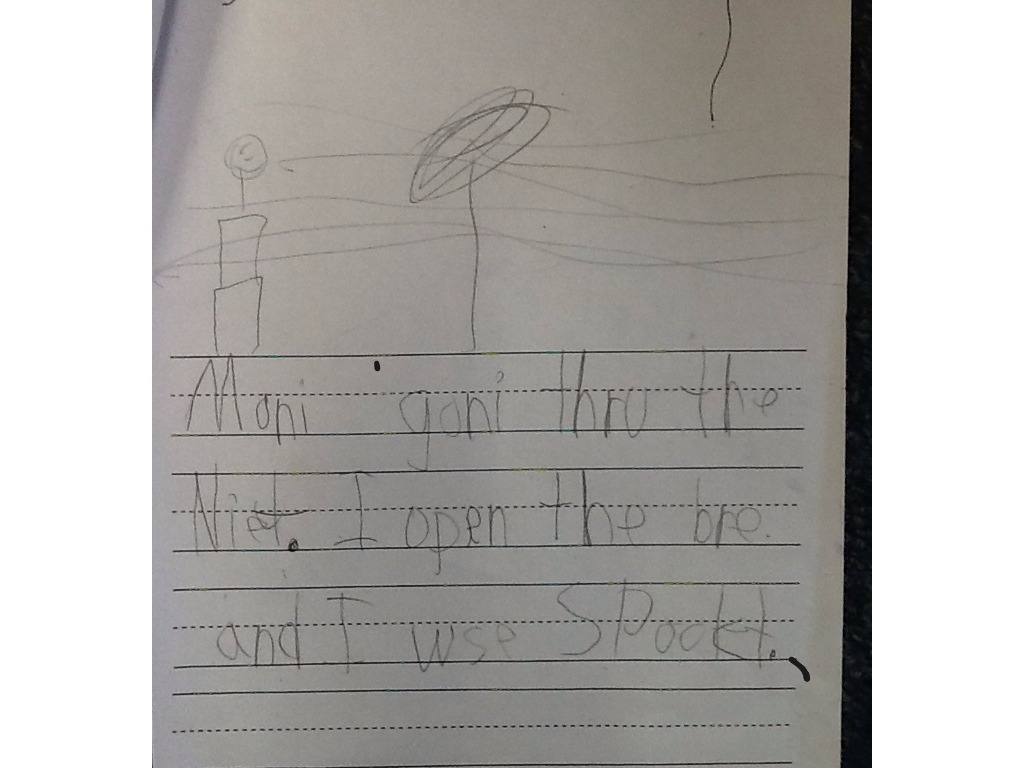 Moni goni thru the
Niet. I open the bre.
and I wse Spookt.